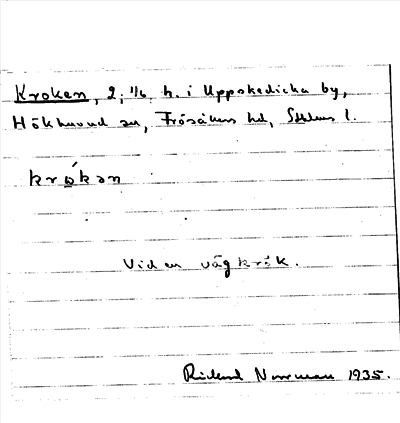 Kroken, 2, 1/6 h. i Uppskedicka by,
Hökhuvud sn, Frösåkers hd, Sthlms l.
krókən
Vid en vägkrók.
Rickard Norrman 1935.